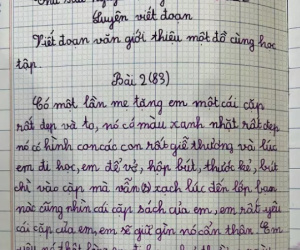 Luyện viết đoạn
Viết đoạn văn giới thiệu một đồ cùng học
tập.
Bài 2 (83)
Có một lần mẹ tăng em một cái cặp
rất đẹp và to, nó có màu xanh nhạt rất đẹp
nó có hình con các con rất giễ thương và lúc
em đi học, em để vở, hộp bút, thước kẻ, bút
chì vào cặp mà vẫn xạch lúc đến lớp bạn
nào cũng nhìn cái cặp sách của em, em rất yêu
cái cặp của em, em sẽ giữ gìn nó cẩn thận. Em